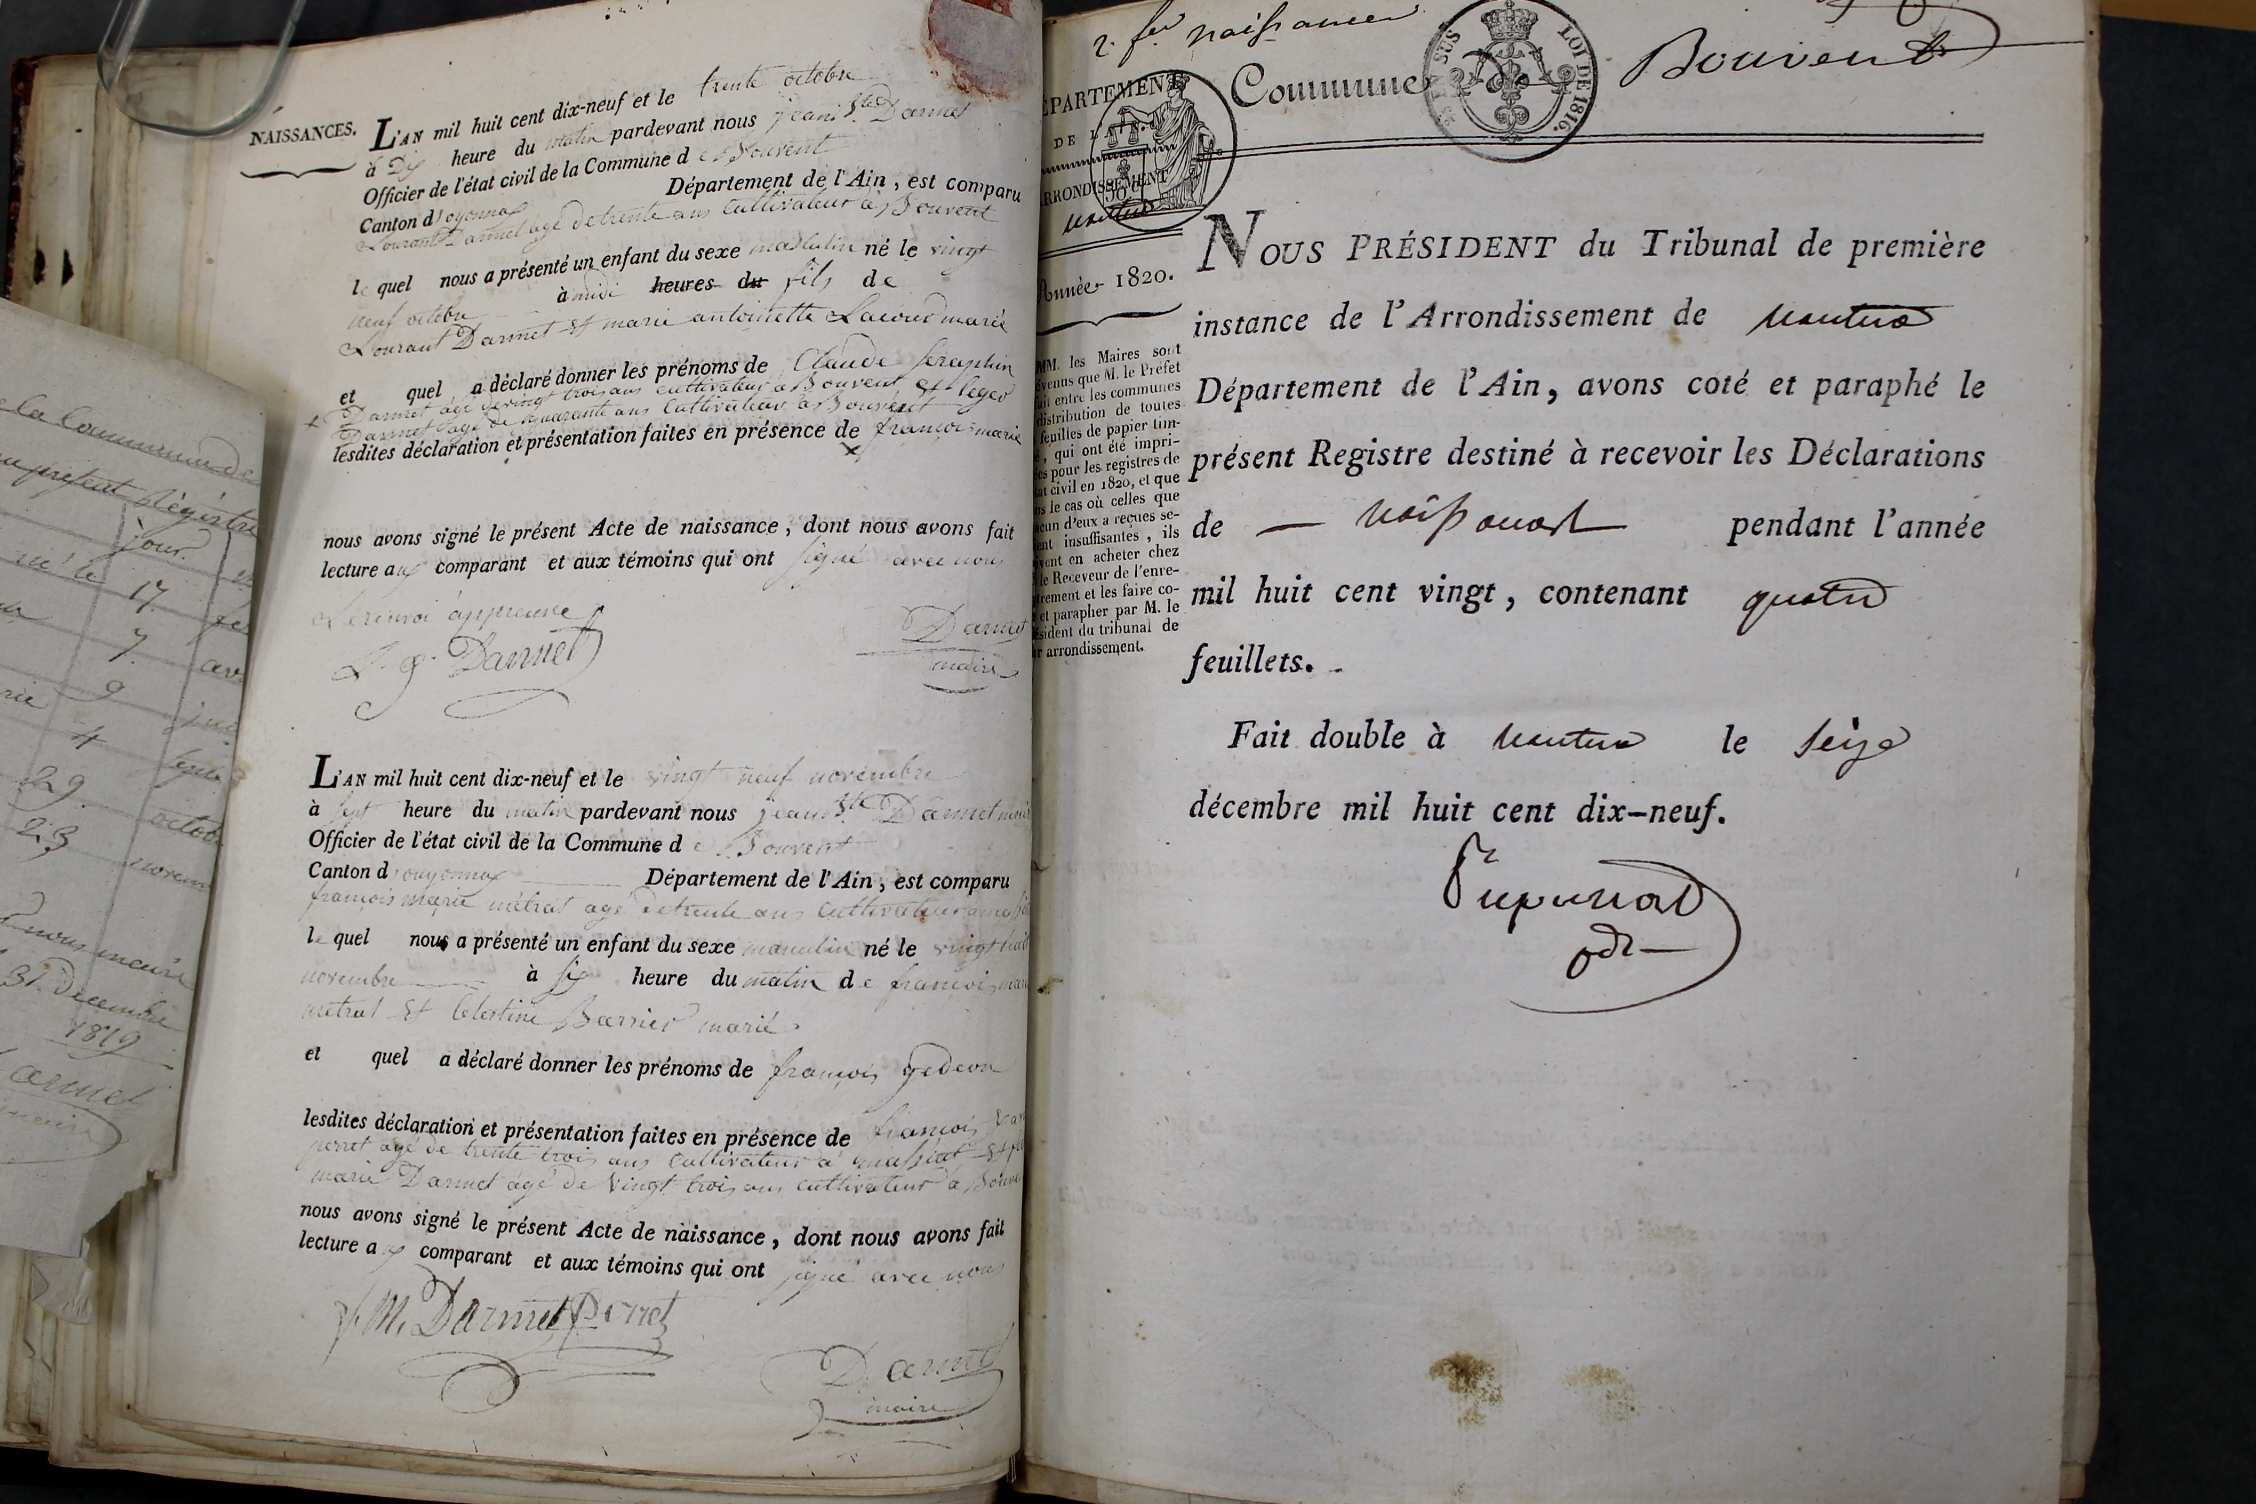 de la Commune de
au present Régistre
jour
né le 17
7. av
9
4 sept
29. octob
23 novem
nous maire
31. decembre
1819
Darmet
maire
NAISSANCES.
L'AN mil huit cent dix-neuf et le trente octobre
à Dix heure du matin pardevant nous jean Bte Darmet
Officier de l'état civil de la Commune d e Bouvent
Canton d'oyonnax Département de l'Ain, est comparu
Lourant Darmet agé de trente ans cultivateur à Bouvent
le quel nous a présenté un enfant du sexe masculin né le vingt
neuf octobre à midi heures du fils de
Lourant Darmet et marie antoinette Lacour marié
et quel a déclaré donner les prénoms de Claude seraphin
+ Darmet âgé de vingt trois ans cultivateur à Bouvent et leger
Darmet agé de quarante ans cultivateur à Bouvent
lesdites déclaration et présentation faites en présence de françois marie
nous avons signé le présent Acte de naissance, dont nous avons fait
lecture aux comparant et aux témoins qui ont signé avec nous
Le renvoi approuvé
L. g. Darmet
Darmet
maire
L'AN mil huit cent dix-neuf et le vingt neuf novembre
à sept heure du matin pardevant nous jean Bte Darmet maire
Officier de l'état civil de la Commune d e Bouvent
Canton d'ouyonnax Département de l'Ain, est comparu
françois marie métral agé de trente ans cultivateur
le quel nous a présenté un enfant du sexe masculin né le vingt huit
novembre à six heure du matin d e françois marie
métral et Celestine Barrier marié
et quel a déclaré donner les prénoms de françois gedeon
lesdites déclaration et présentation faites en présence de françois
perret agé de trente trois ans cultivateur à massiat et
marie Darmet âgé de vingt trois ans cultivateur à Bouve
nous avons signé le présent Acte de naissance, dont nous avons fait
lecture aux comparant et aux témoins qui ont signé avec nous
f. M. Darmet Perret
Darmet
maire
2. fer naissances
DÉPARTEMENT
DE L'AIN.
ARRONDISSEMENT
nantua
Commune de Bouvent
SUS
LOI DE 1816.
Année 1820.
MM. les Maires sont
évenus que M. le Préfet
fait entre les communes
distribution de toutes
feuilles de papier tim-
é, qui ont été impri-
ées pour les registres de
tat civil en 1820, et que
ns le cas où celles que
acun d'eux a reçues se-
ient insuffisantes, ils
ivent en acheter chez
le Receveur de l'enre-
trement et les faire co-
et parapher par M. le
ésident du tribunal de
r arrondissement.
NOUS PRÉSIDENT du Tribunal de première
instance de l'Arrondissement de nantua
Département de l'Ain, avons coté et paraphé le
présent Registre destiné à recevoir les Déclarations
de — naissances pendant l'année
mil huit cent vingt, contenant quatre
feuillets.
Fait double à nantua le seize
décembre mil huit cent dix-neuf.